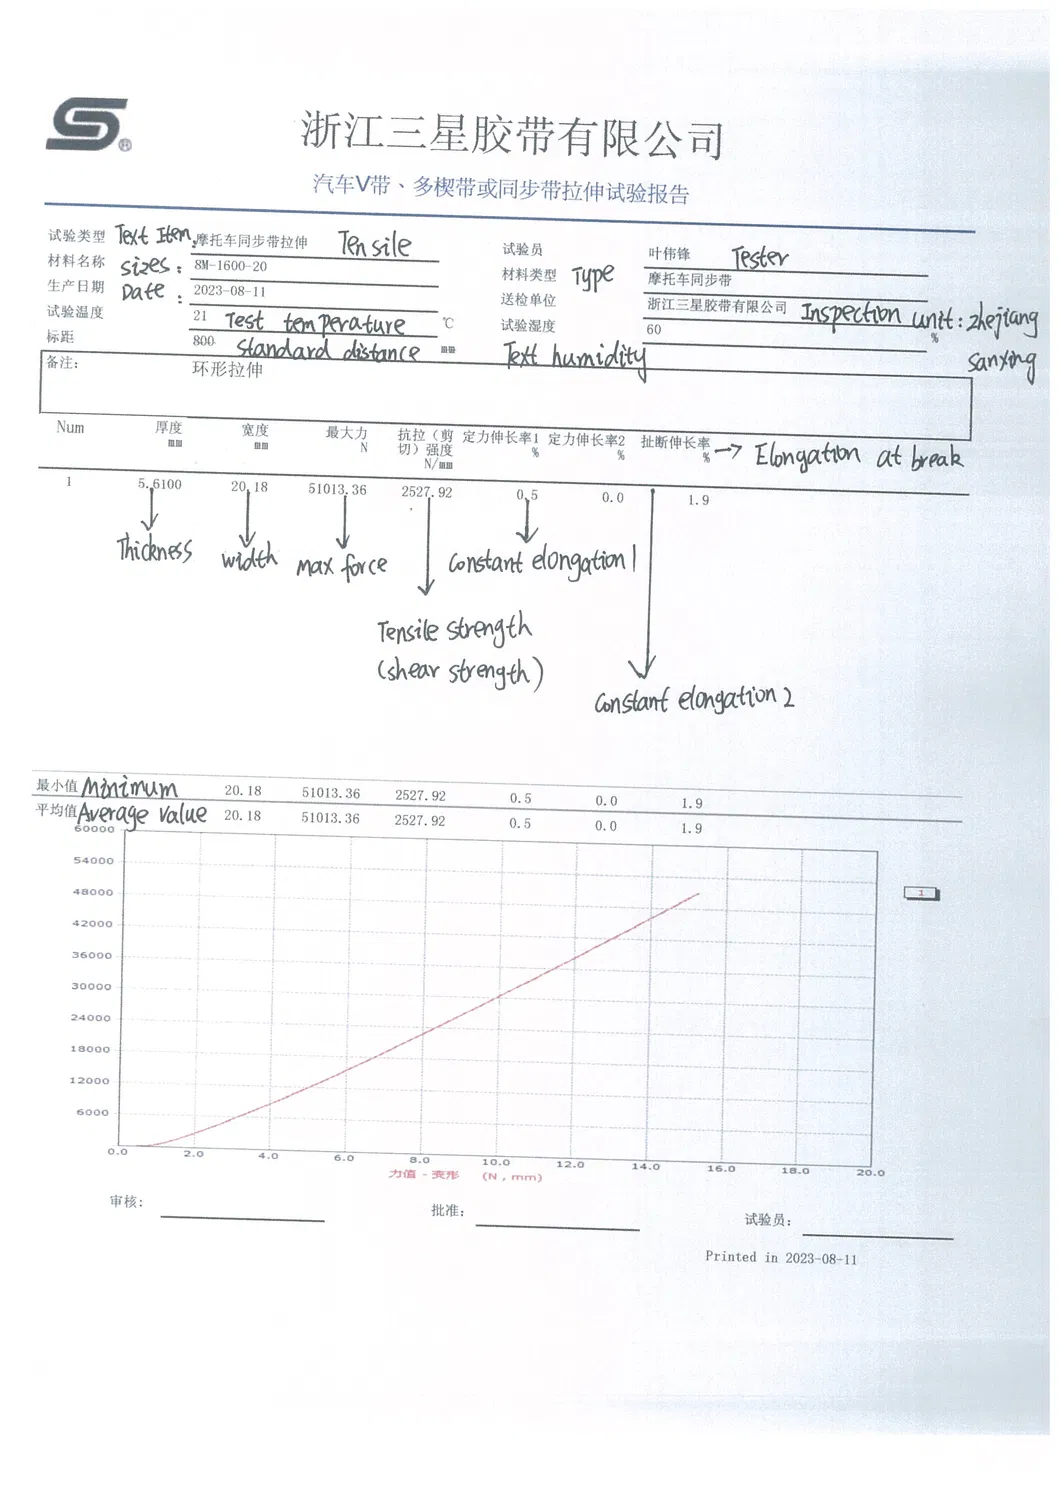 S®
浙江三星胶带有限公司
汽车V带、多楔带或同步带拉伸试验报告
试验类型 Text Item: 摩托车同步带拉伸 Tensile 试验员 叶伟锋 Tester
材料名称 sizes: 8M-1600-20 材料类型 Type 摩托车同步带
生产日期 Date: 2023-08-11 送检单位 浙江三星胶带有限公司 Inspection unit: zhejiang sanxing
试验温度 21 Test temperature ℃ 试验湿度 60 %
标距 800 standard distance mm Text humidity
备注: 环形拉伸
Num 厚度 mm 宽度 mm 最大力 N 抗拉（剪切）强度 N/mm 定力伸长率1 % 定力伸长率2 % 扯断伸长率 % → Elongation at break
1 5.6100 20.18 51013.36 2527.92 0.5 0.0 1.9
Thickness width max force Constant elongation 1
Tensile strength
(shear strength)
Constant elongation 2
最小值 Minimum 20.18 51013.36 2527.92 0.5 0.0 1.9
平均值 Average value 20.18 51013.36 2527.92 0.5 0.0 1.9
60000
54000
48000
42000
36000
30000
24000
18000
12000
6000
1
0.0 2.0 4.0 6.0 8.0 10.0 12.0 14.0 16.0 18.0 20.0
力值 - 变形 (N , mm)
审核: 批准: 试验员:
Printed in 2023-08-11